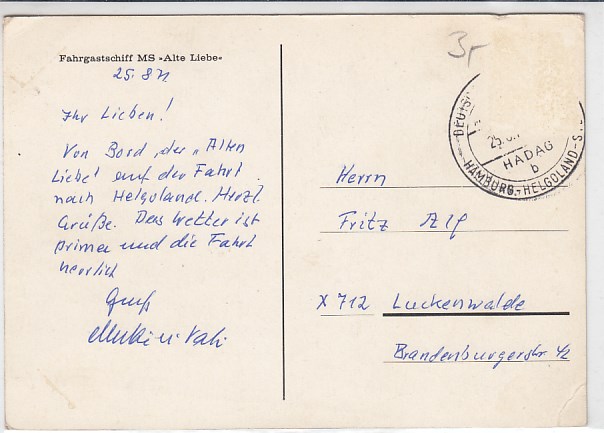 Fahrgastschiff MS »Alte Liebe«
25. 8 71
Ihr Lieben!
Von Bord der „Alten
Liebe" auf der Fahrt
nach Helgoland. Herzl.
Grüße. Das Wetter ist
prima und die Fahrt
herrlich
Gruß
3,-
DEUTS
25.8.
HADAG
b
HAMBURG-HELGOLAND-S
Herrn
Fritz Alf
X 712 Luckenwalde
Brandenburgerstr 42